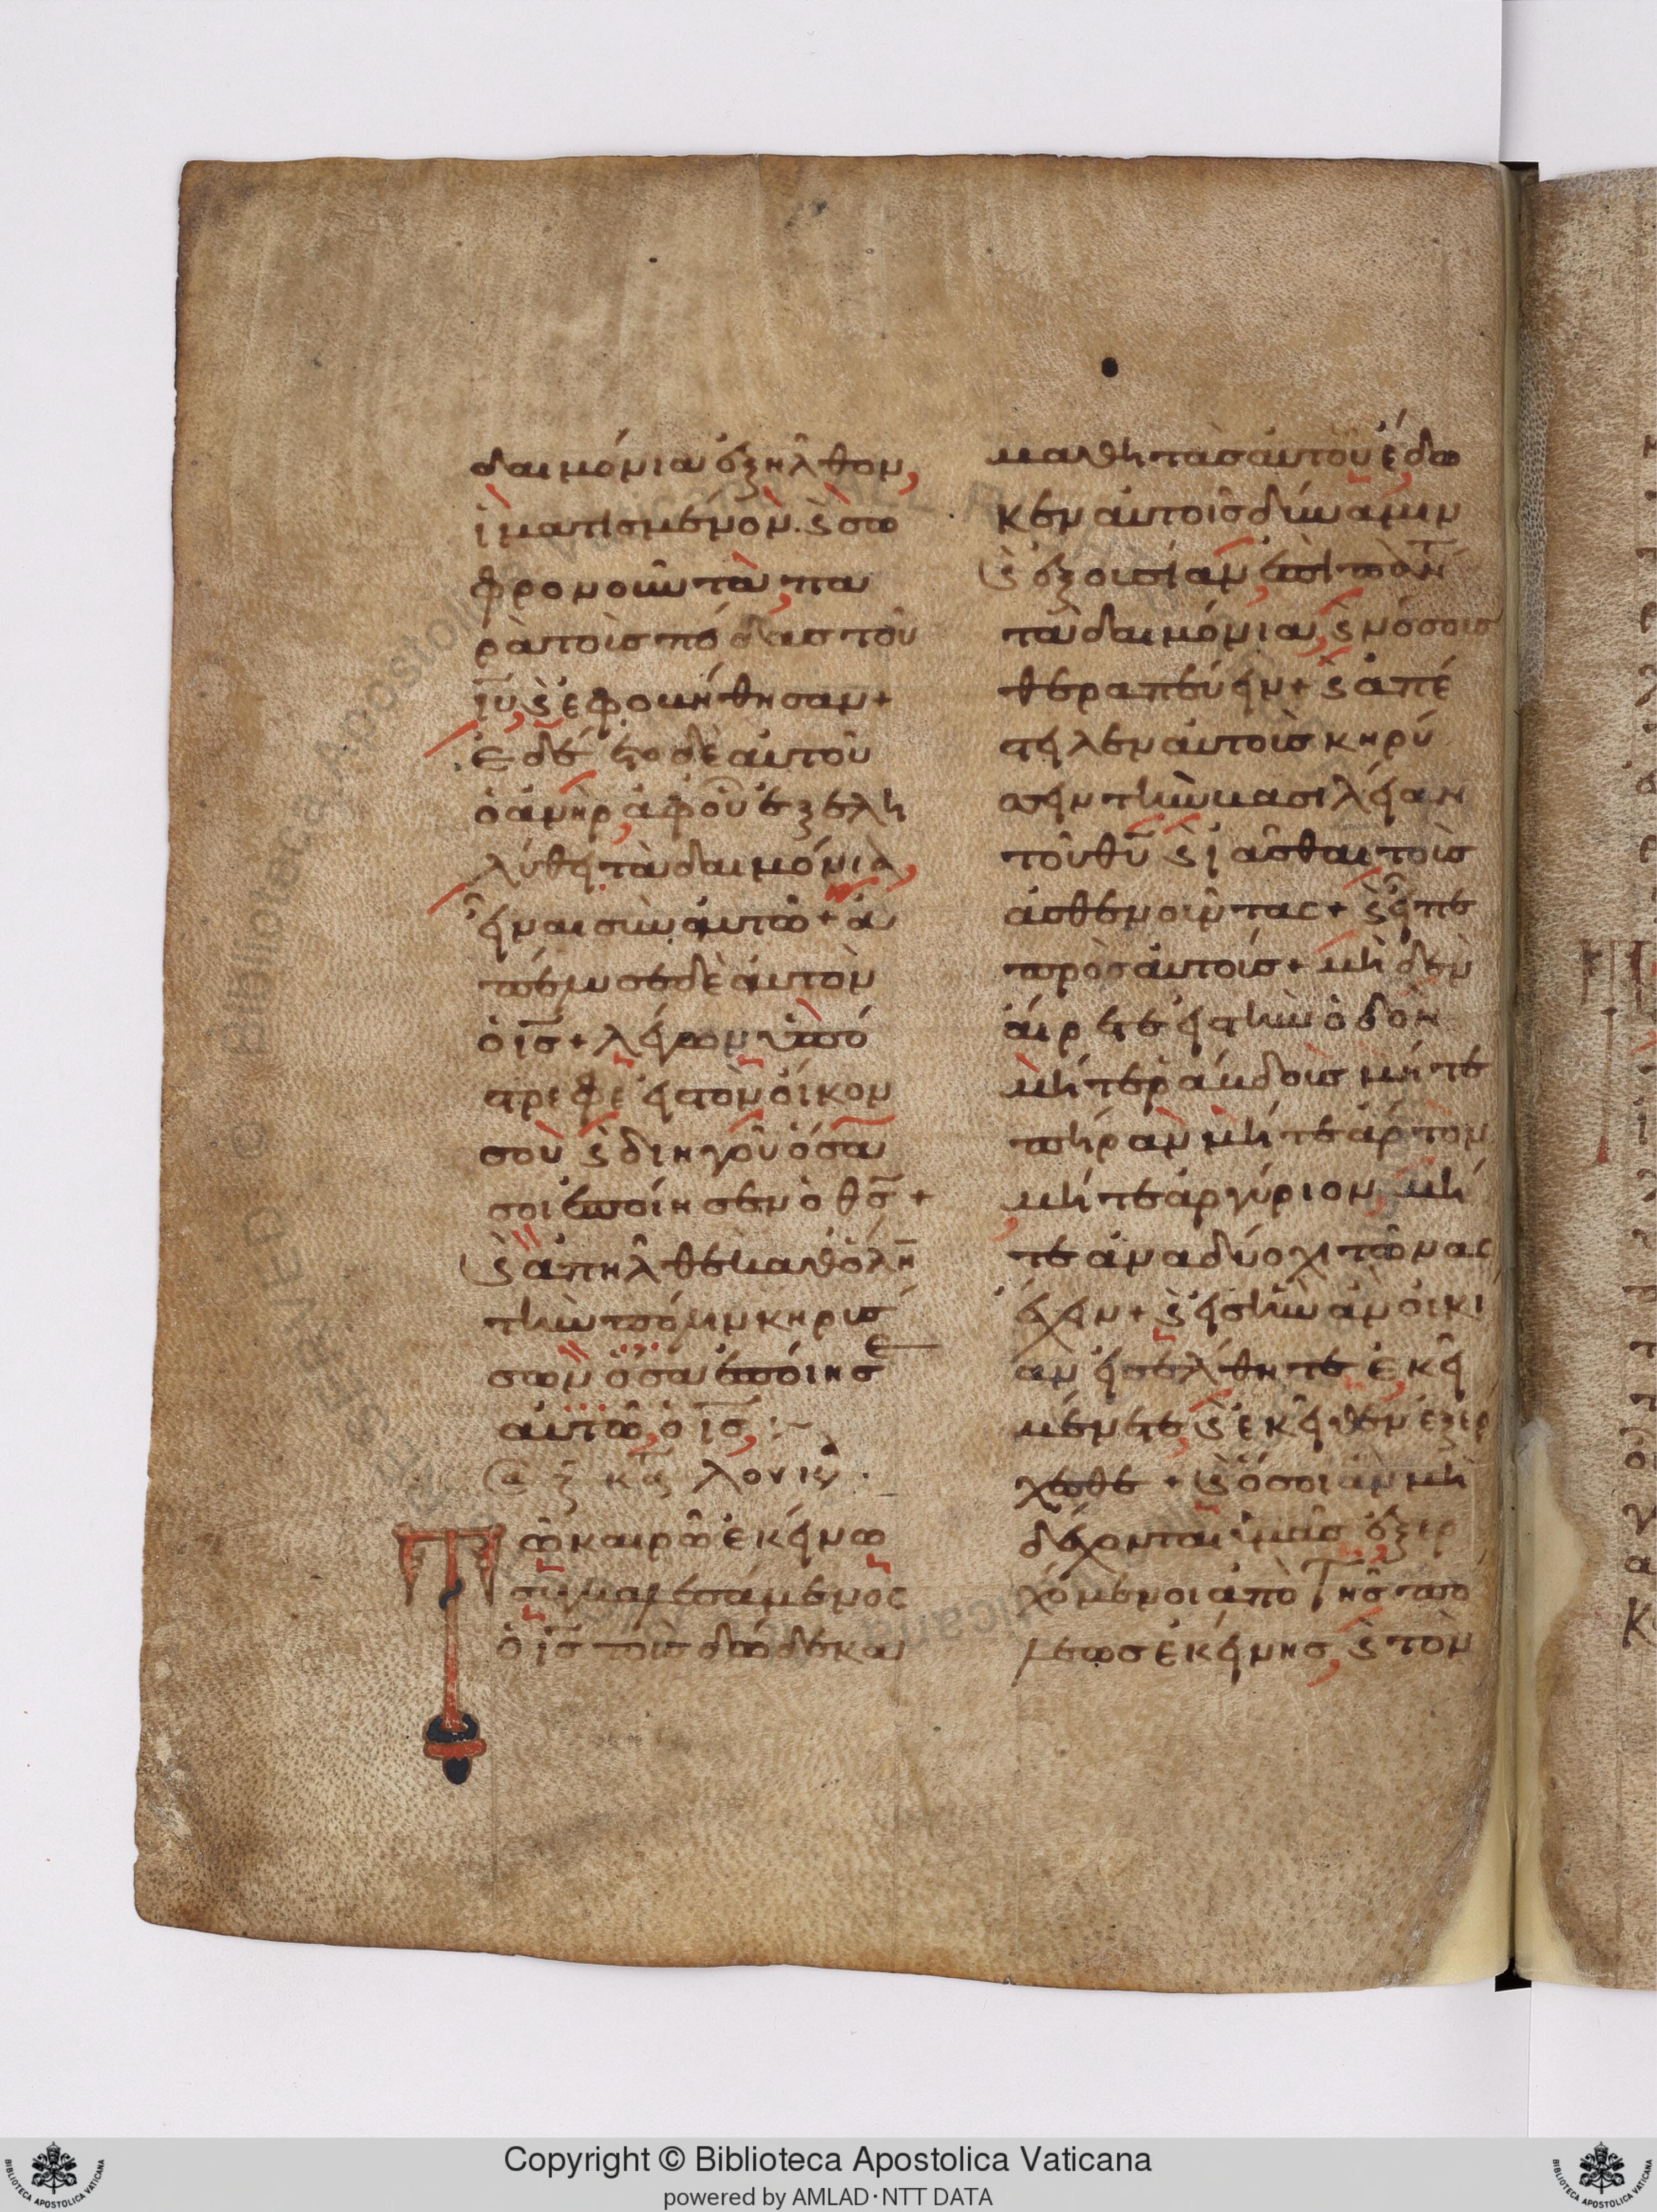 δαιμόνια ἐξηλθον,
ἱματισμένον. ϗ σω
φρονοῦντα, πα
ρὰ τοὶς πόδας τοῦ
ι̅υ̅, ϗ ἐφοβήθησαν +
ἐδέετο δὲ αὐτοῦ
ὁ ἀνὴρ ἀφ' οὗ ἐξελη
λύθει τὰ δαιμόνια,
εἶναι σὺν αὐτῶ + ἀ
πέλυσε δὲ αὐτὸν
ὁ ι̅ς̅ + λέγων ὑπό
στρεφε εἰς τὸν οἶκον
σοὺ ϗ διηγοῦ ὅσα
σοι ἐποίησεν ὁ θ̅ς̅ +
ϗ ἀπῆλθε καθ' ὅλη̅
τὴν πόλιν κηρύσ
σων ὅσα ἐποίησε
αὐτῶ, ὁ ι̅ς̅, :~
λουκ
Τῶ καιρῶ ἐκείνω
συγκαλεσάμενος
ὁ ι̅ς̅ τοὺς δώδεκα
μαθητὰς αὐτοῦ ἔδω
κεν αὐτοῖς δύναμιν
ϗ ἐξουσίαν, ἐπὶ πάντ
τα δαιμόνια, ϗ νόσοις
θεραπεύειν + ϗ ἀπέ
στειλεν αὐτοὺς κηρύ
σσειν τὴν βασιλείαν
τοῦ θ̅υ̅ ϗ ἰᾶσθαι τοὺς
ἀσθενοῦντας + ϗ εἶπε
πρὸς αὐτούς + μὴδὲν
αἴρετε εἰς τὴν ὁδὸν
μήτε ράβδους μήτε
πήραν μήτε ἄρτον
μήτε ἀργύριον, μή
τε ἀνα δύο χιτῶνας
ἔχειν + ϗ εἰς ἣν ἂν οἰκι
αν εἰσέλθητε ἐκεῖ
μένετε, ϗ ἐκεῖθεν ἐξερ
χεσθε + ϗ ὅσοι ἂν μὴ
δέχονται ὑμᾶς ἐξερ
χόμενοι ἀπὸ τῆς πό
λεως ἐκείνης, ϗ τὸν
Copyright © Biblioteca Apostolica Vaticana
powered by AMLAD·NTT DATA